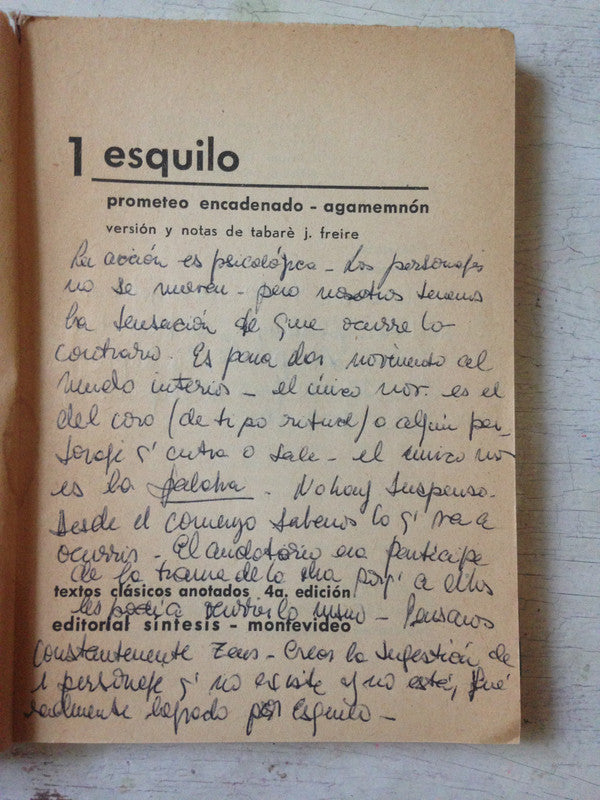 1 esquilo
prometeo encadenado - agamemnón
versión y notas de tabarè j. freire
La acción es psicológica - Los personajes
no se mueven - pero nosotros tenemos
la sensación de que ocurre lo
contrario. Es para dar movimiento al
mundo interior - el único mov. es el
del coro (de tipo ritual) o algún per-
sonaje q' entra o sale - el único mov
es la palabra. No hay suspenso.
Desde el comienzo sabemos lo q' va a
ocurrir - El auditorio era partícipe
de la trama de la porq' a ellos
textos clásicos anotados 4a. edición
les podía ocurrir lo mismo - Pensamos
editorial síntesis - montevideo
constantemente Zeus - Crear la sugestión de
l personaje q' no existe y no está, fué
realmente logrado por Esquilo -